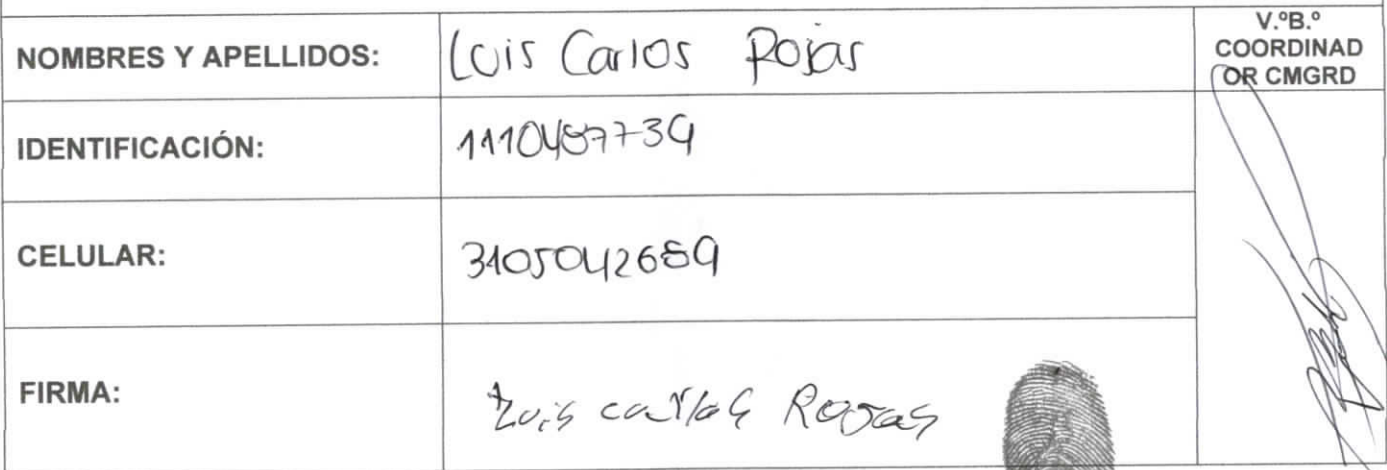 NOMBRES Y APELLIDOS: Luis Carlos Rojas
V.ºB.º
COORDINAD
OR CMGRD
IDENTIFICACIÓN: 1110487739
CELULAR: 3105042689
FIRMA: Luis carlos Rojas